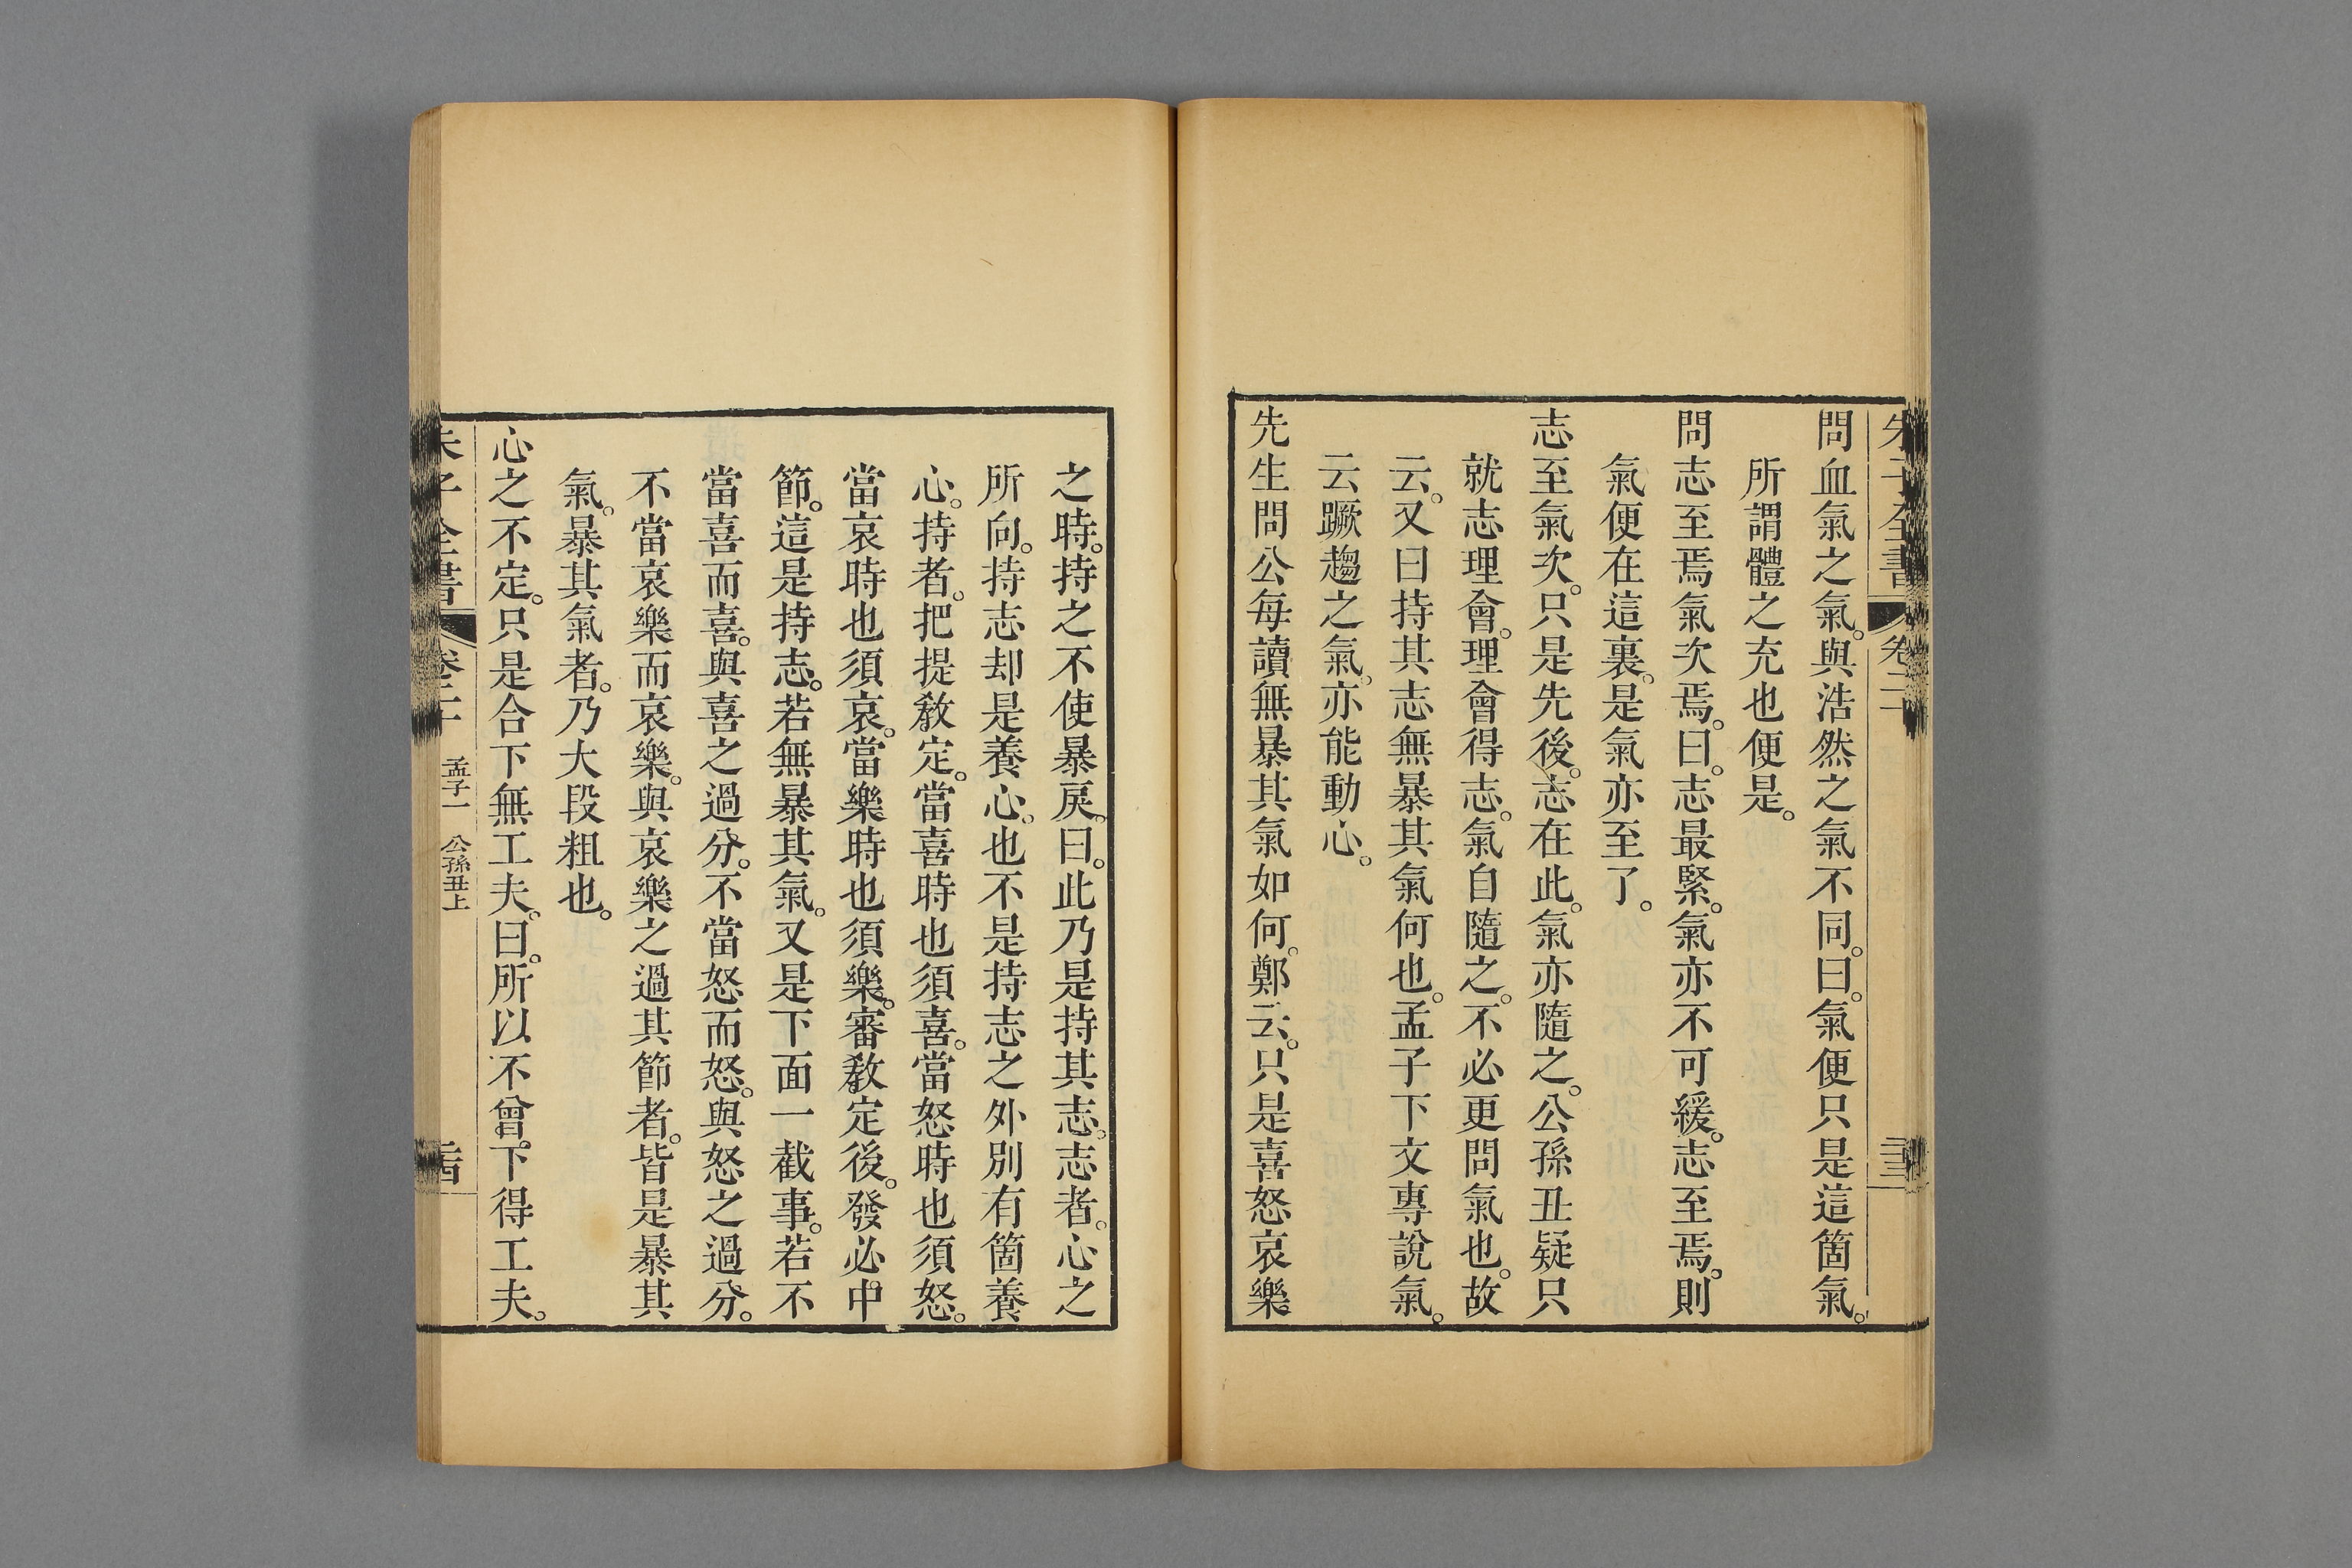 朱子全書 卷二十 二十三
問血氣之氣。與浩然之氣不同。曰。氣便只是這箇氣。
所謂體之充也便是。
問志至焉氣次焉。曰。志最緊。氣亦不可緩。志至焉。則
氣便在這裏。是氣亦至了。
志至氣次。只是先後。志在此。氣亦隨之。公孫丑疑只
就志理會。理會得志。氣自隨之。不必更問氣也。故
云。又曰持其志無暴其氣何也。孟子下文專說氣。
云蹶趨之氣。亦能動心。
先生問公每讀無暴其氣如何。鄭云。只是喜怒哀樂
之時。持之不使暴戾。曰。此乃是持其志。志者。心之
所向。持志却是養心。也不是持志之外別有箇養
心。持者。把提敎定。當喜時也須喜。當怒時也須怒。
當哀時也須哀。當樂時也須樂。審敎定後。發必中
節。這是持志。若無暴其氣。又是下面一截事。若不
當喜而喜。與喜之過分。不當怒而怒。與怒之過分。
不當哀樂而哀樂。與哀樂之過其節者。皆是暴其
氣。暴其氣者。乃大段粗也。
心之不定。只是合下無工夫。曰。所以不曾下得工夫。
朱子全書 卷二十 孟子一 公孫丑上